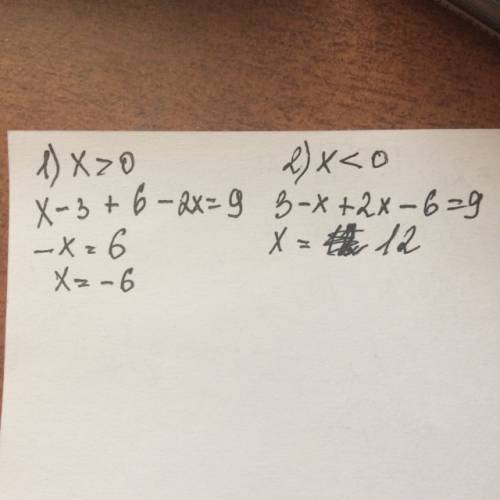 1) x > 0
x - 3 + 6 - 2x = 9
-x = 6
x = -6
2) x < 0
3 - x + 2x - 6 = 9
x = 12